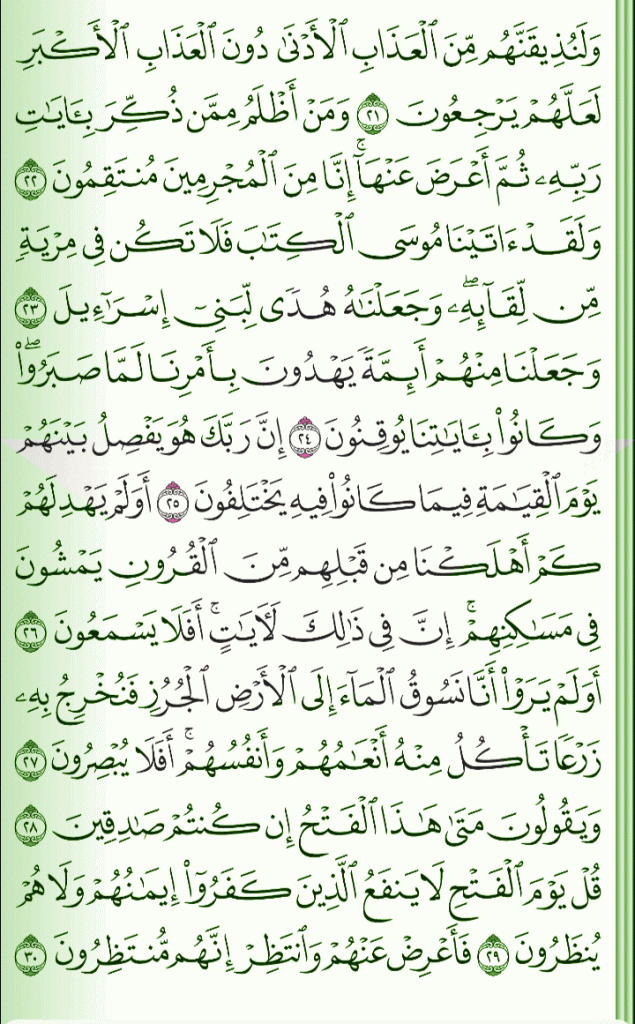 وَلَنُذِيقَنَّهُم مِّنَ ٱلْعَذَابِ ٱلْأَدْنَىٰ دُونَ ٱلْعَذَابِ ٱلْأَكْبَرِ
لَعَلَّهُمْ يَرْجِعُونَ ٢١ وَمَنْ أَظْلَمُ مِمَّن ذُكِّرَ بِـَٔايَـٰتِ
رَبِّهِۦ ثُمَّ أَعْرَضَ عَنْهَآ ۚ إِنَّا مِنَ ٱلْمُجْرِمِينَ مُنتَقِمُونَ ٢٢
وَلَقَدْ ءَاتَيْنَا مُوسَى ٱلْكِتَـٰبَ فَلَا تَكُن فِى مِرْيَةٍ
مِّن لِّقَآئِهِۦ ۖ وَجَعَلْنَـٰهُ هُدًى لِّبَنِىٓ إِسْرَٰٓءِيلَ ٢٣
وَجَعَلْنَا مِنْهُمْ أَئِمَّةً يَهْدُونَ بِأَمْرِنَا لَمَّا صَبَرُوا۟ ۖ
وَكَانُوا۟ بِـَٔايَـٰتِنَا يُوقِنُونَ ٢٤ إِنَّ رَبَّكَ هُوَ يَفْصِلُ بَيْنَهُمْ
يَوْمَ ٱلْقِيَـٰمَةِ فِيمَا كَانُوا۟ فِيهِ يَخْتَلِفُونَ ٢٥ أَوَلَمْ يَهْدِ لَهُمْ
كَمْ أَهْلَكْنَا مِن قَبْلِهِم مِّنَ ٱلْقُرُونِ يَمْشُونَ
فِى مَسَـٰكِنِهِمْ ۚ إِنَّ فِى ذَٰلِكَ لَـَٔايَـٰتٍ ۖ أَفَلَا يَسْمَعُونَ ٢٦
أَوَلَمْ يَرَوْا۟ أَنَّا نَسُوقُ ٱلْمَآءَ إِلَى ٱلْأَرْضِ ٱلْجُرُزِ فَنُخْرِجُ بِهِۦ
زَرْعًا تَأْكُلُ مِنْهُ أَنْعَـٰمُهُمْ وَأَنفُسُهُمْ ۚ أَفَلَا يُبْصِرُونَ ٢٧
وَيَقُولُونَ مَتَىٰ هَـٰذَا ٱلْفَتْحُ إِن كُنتُمْ صَـٰدِقِينَ ٢٨
قُلْ يَوْمَ ٱلْفَتْحِ لَا يَنفَعُ ٱلَّذِينَ كَفَرُوٓا۟ إِيمَـٰنُهُمْ وَلَا هُمْ
يُنظَرُونَ ٢٩ فَأَعْرِضْ عَنْهُمْ وَٱنتَظِرْ إِنَّهُم مُّنتَظِرُونَ ٣٠